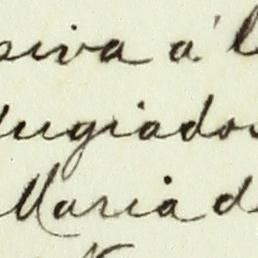 siva a l
fugiados
Maria d